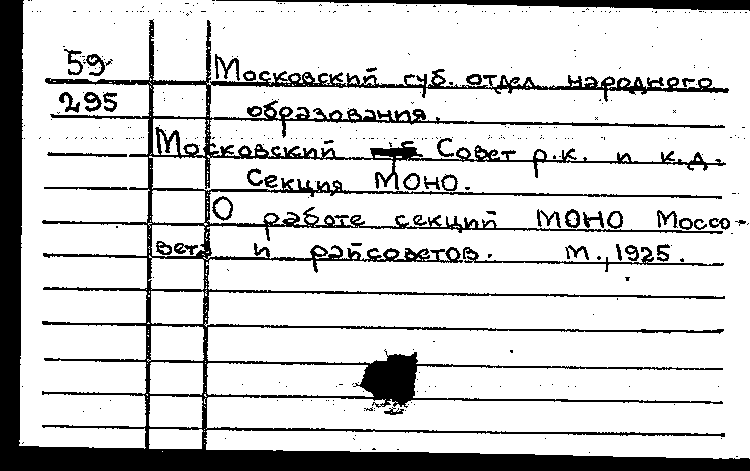 59 Московский губ. отдел народного
295 образования.
Московский Совет р.к. и к.д.
Секция МОНО.
О работе секций МОНО Моссо-
вета и райсоветов. М., 1925.